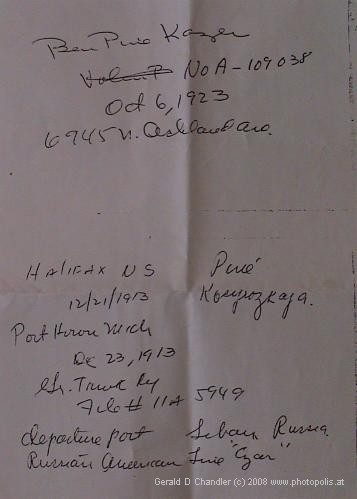 Ben Pine Kazen
Volum P No A-109038
Oct 6, 1923
6945 N. Ashland Ave.
HALIFAX NS Piné
12/21/1913
Port Huron Mich
Dec 23, 1913
Gr. Trunk Ry
File # 11A 5949
departure port Libau, Russia.
Russian American Line "Czar"
Gerald D Chandler (c) 2008 www.photopolis.at